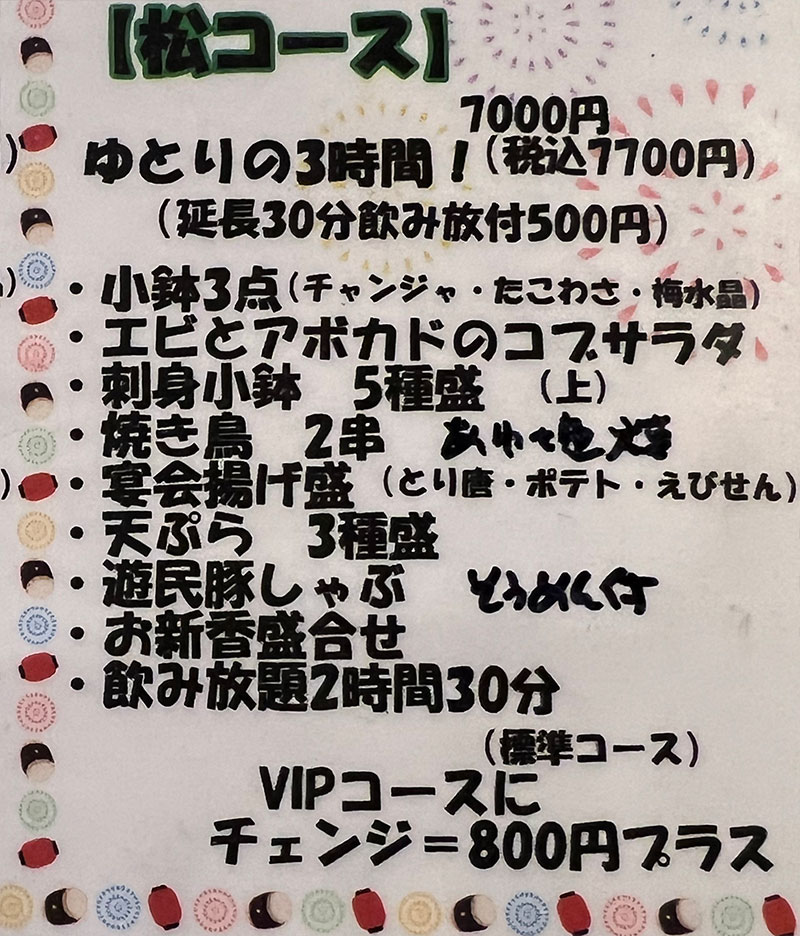 【松コース】
7000円
ゆとりの3時間！(税込7700円)
(延長30分飲み放付500円)
・小鉢3点(チャンジャ・たこわさ・梅水晶)
・エビとアボカドのコブサラダ
・刺身小鉢　5種盛　(上)
・焼き鳥　2串
・宴会揚げ盛　(とり唐・ポテト・えびせん)
・天ぷら　3種盛
・遊民豚しゃぶ　そうめん付
・お新香盛合せ
・飲み放題2時間30分
(標準コース)
VIPコースに
チェンジ＝800円プラス